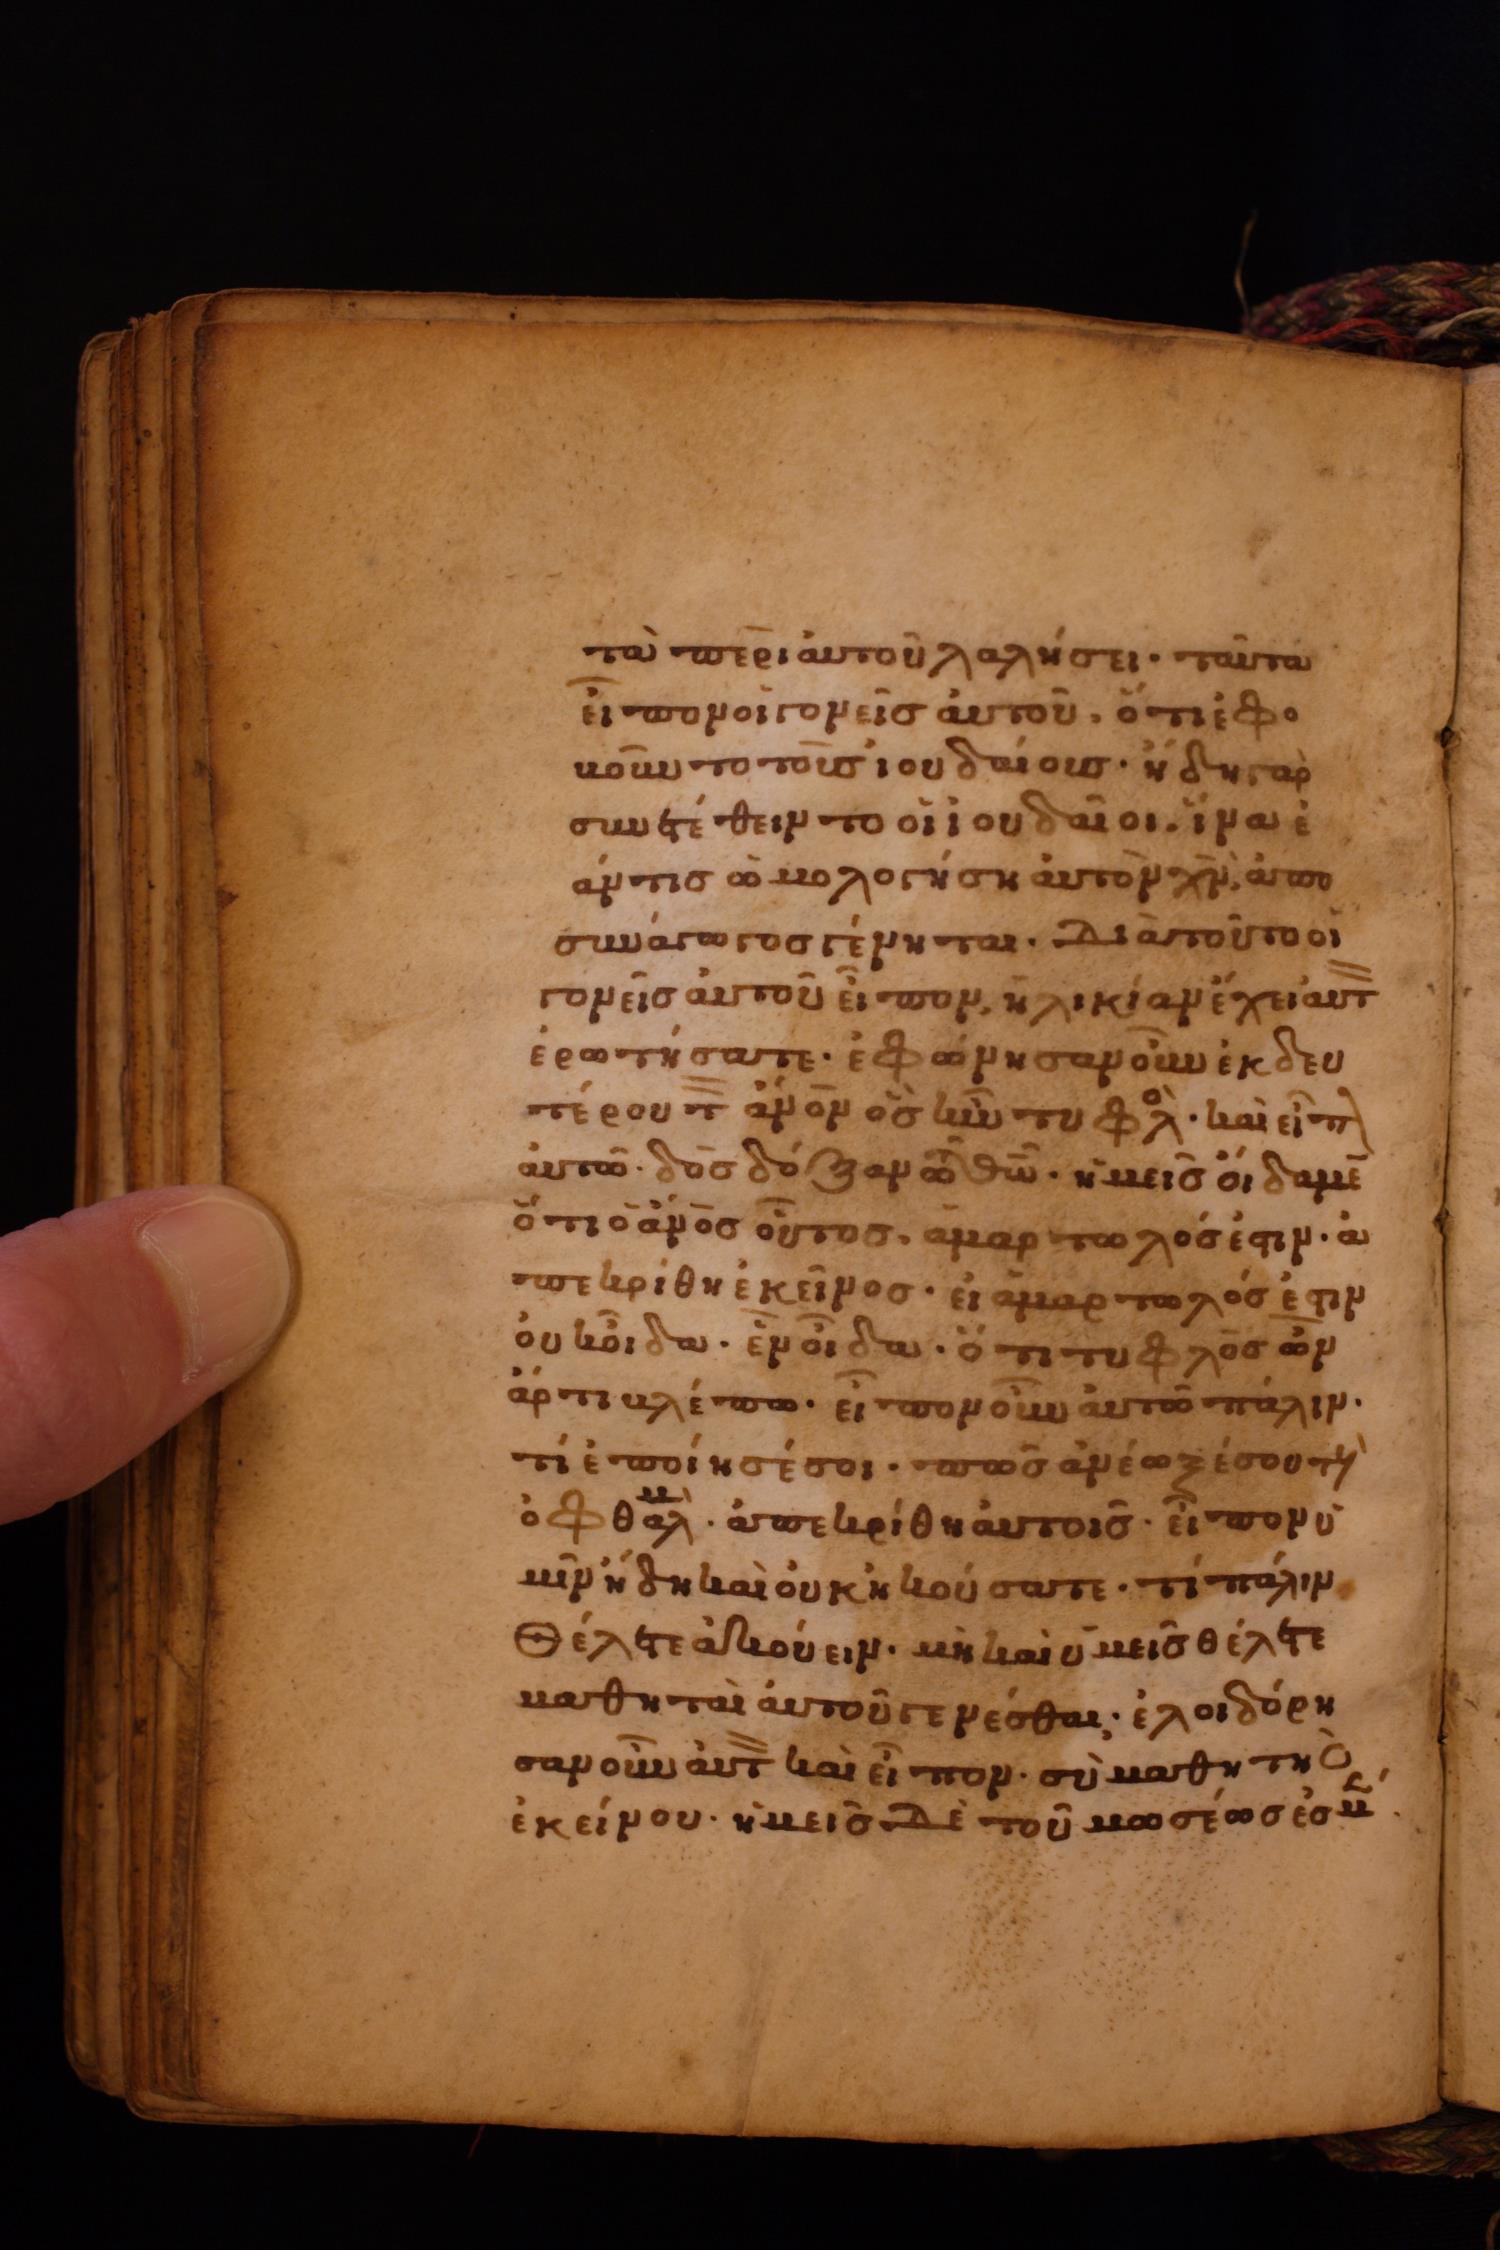 τὰ περὶ ἀυτοῦ λαλήσει· ταῦτα
εἶπον οἱ γονεῖσ ἀυτοῦ, ὅτι ἐφο
βοῦντο τοῦσ ἰουδαίουσ· ἤδη γαρ
συνετέθειντο οἱ ἰουδαῖοι. ἵνα ἐ
άν τισ ὡμολογήση ἀυτὸν χν̀, ἀπο
συνάγωγοσ γένηται· Διὰ τοῦτο οἱ
γονεῖσ ἀυτοῦ εἶπον, ἡλικίαν ἔχει ἀυτ
ἐρωτήσατε· ἐφώνησαν οὖν ἐκ δευ
τέρου τ ἄνον ὃσ ἦν τυφλ· καὶ εἶπ
ἀυτῶ· δὸσ δόξαν τῶ θω· ἡμεῖσ οἴδαμε
ὅτι ὁ ἄνοσ οὗτοσ, ἁμαρτωλόσ ἐστιν· ἀ
πεκρίθη ἐκεῖνοσ· εἰ ἁμαρτωλόσ ἐστιν
ὀυκ οἶδα· ἓν οἶδα· ὅτι τυφλὸσ ὢν
ἄρτι βλέπω· εἶπον οὖν ἀυτῶ πάλιν·
τί ἐποίησέ σοι· πῶσ ἀνέωξέ σου τ
ὀφθαλμ· ἀπεκρίθη ἀυτοισ· εἶπον ὑ
μῖν ἤδη καὶ ὀυκ ἠκούσατε· τί πάλιν
Θέλετε ἀκούειν· μὴ καὶ ὑμεῖσ θέλετε
μαθηταὶ ἀυτοῦ γενέσθαι; ἐλοιδόρη
σαν οὖν ἀυτ καὶ εἶπον· σὺ μαθητὴσ
ἐκείνου· ἡμεῖσ Δὲ τοῦ μωσέωσ ἐσμ